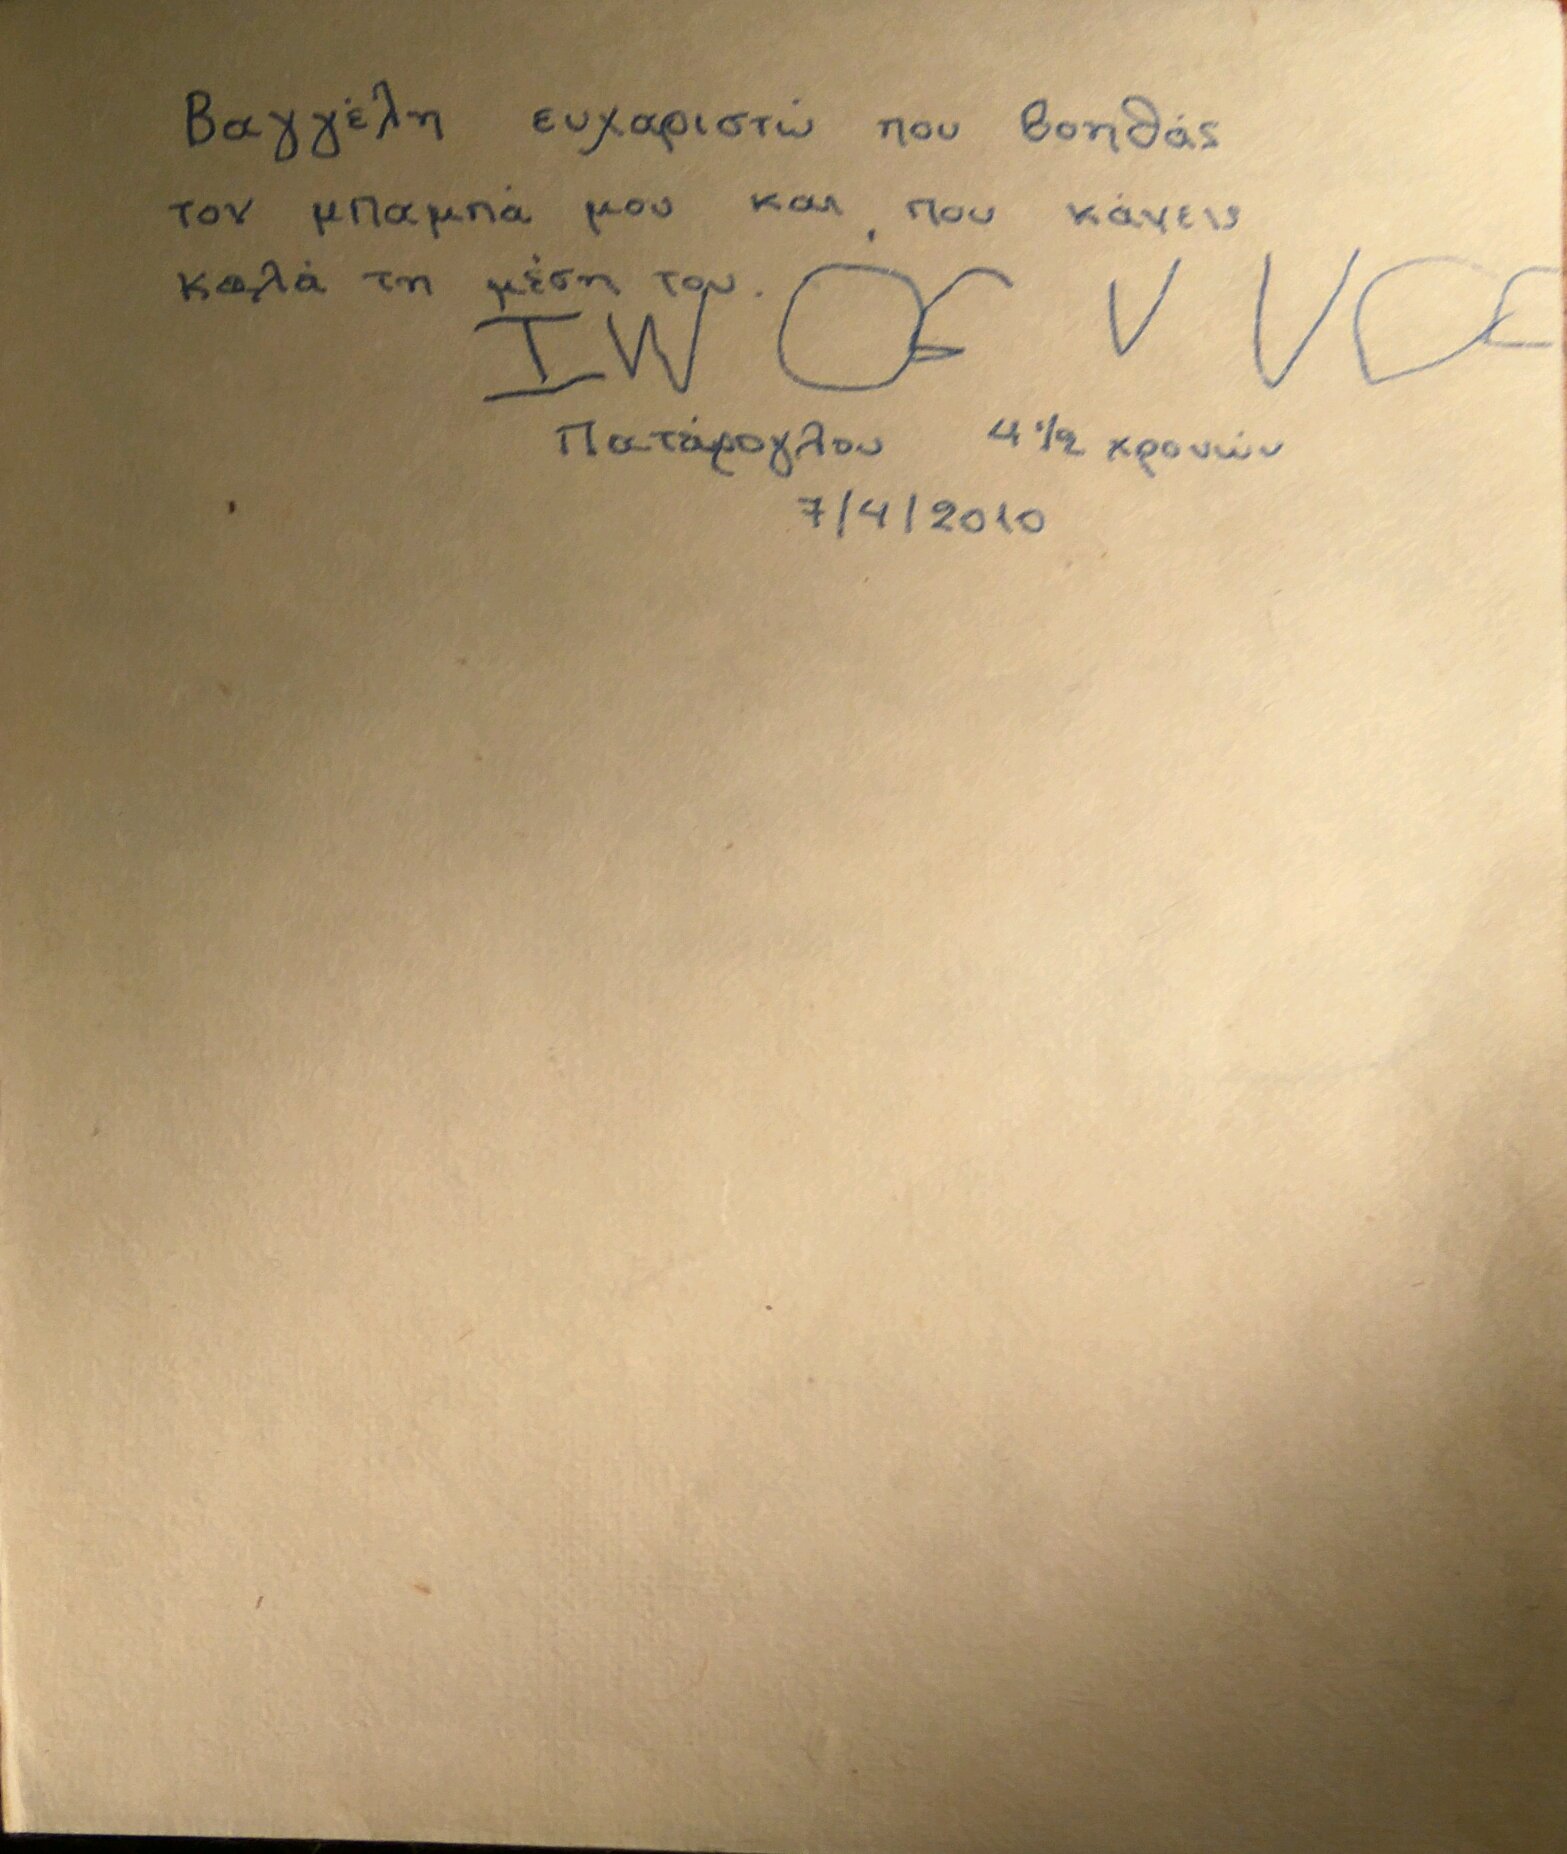 Βαγγέλη ευχαριστώ που βοηθάς
τον μπαμπά μου και που κάνεις
καλά τη μέση του.
Πατάρογλου 4 1/2 χρονών
7/4/2010